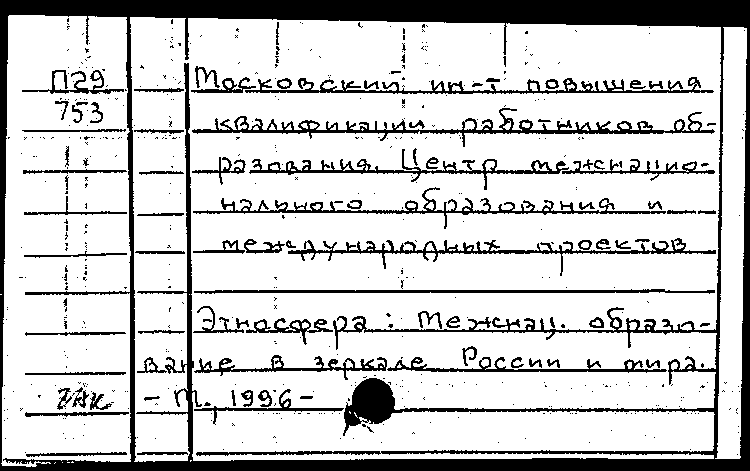 П29 Московский ин-т повышения
753 квалификации работников об-
разования. Центр межнацио-
нального образования и
международных проектов
Этносфера : Межнац. образо-
вание в зеркале России и мира.
ЗАК - М., 1996 -